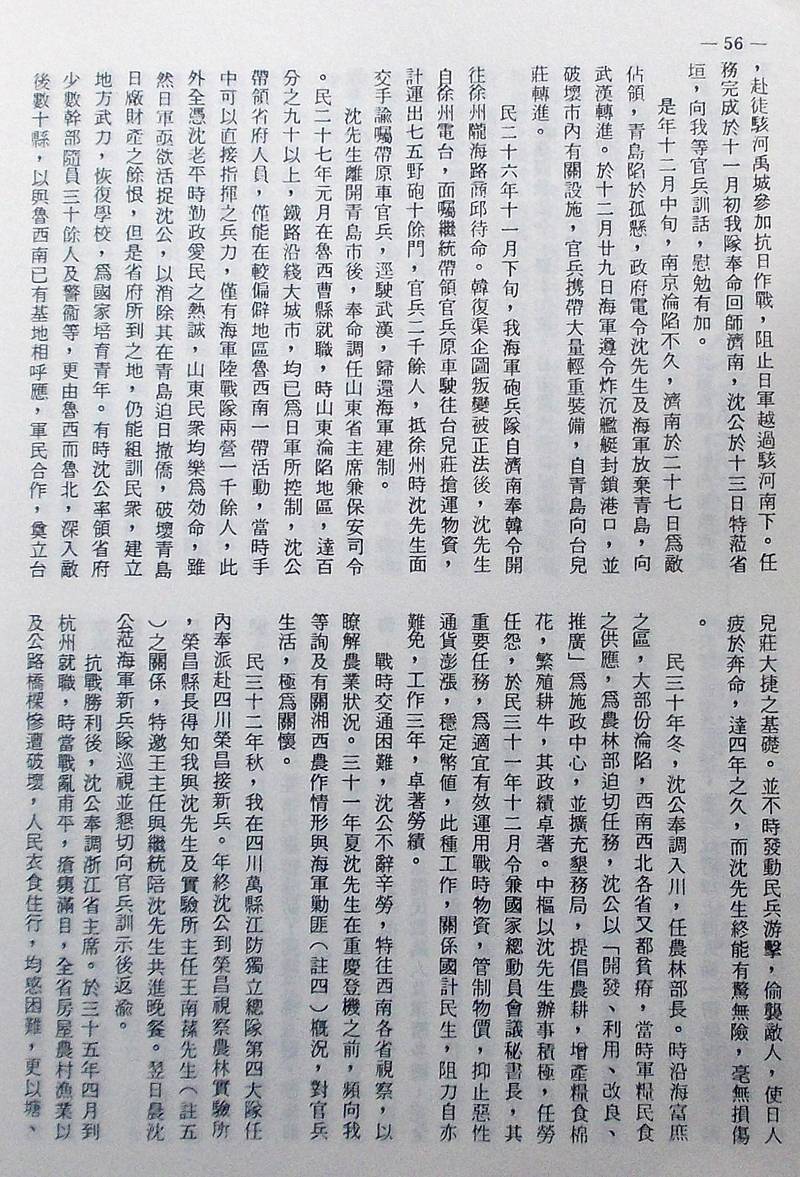 — 56 —
，赴徒駭河禹城參加抗日作戰，阻止日軍越過駭河南下。任
務完成於十一月初我隊奉命回師濟南，沈公於十三日特蒞省
垣，向我等官兵訓話，慰勉有加。
是年十二月中旬，南京淪陷不久，濟南於二十七日爲敵
佔領，青島陷於孤懸，政府電令沈先生及海軍放棄青島，向
武漢轉進。於十二月廿九日海軍遵令炸沉艦艇封鎖港口，並
破壞市內有關設施，官兵携帶大量輕重裝備，自青島向台兒
莊轉進。
民二十六年十一月下旬，我海軍砲兵隊自濟南奉韓令開
往徐州隴海路商邱待命。韓復榘企圖叛變被正法後，沈先生
自徐州電台，面囑繼統帶領官兵原車駛往台兒莊搶運物資，
計運出七五野砲十餘門，官兵二千餘人，抵徐州時沈先生面
交手諭囑帶原車官兵，逕駛武漢，歸還海軍建制。
沈先生離開青島市後，奉命調任山東省主席兼保安司令
。民二十七年元月在魯西曹縣就職，時山東淪陷地區，達百
分之九十以上，鐵路沿綫大城市，均已爲日軍所控制，沈公
帶領省府人員，僅能在較偏僻地區魯西南一帶活動，當時手
中可以直接指揮之兵力，僅有海軍陸戰隊兩營一千餘人，此
外全憑沈老平時勤政愛民之熱誠，山東民衆均樂爲効命，雖
然日軍亟欲活捉沈公，以消除其在青島迫日撤僑，破壞青島
日廠財產之餘恨，但是省府所到之地，仍能組訓民衆，建立
地方武力，恢復學校，爲國家培育青年。有時沈公率領省府
少數幹部隨員三十餘人及警衞等，更由魯西而魯北，深入敵
後數十縣，以與魯西南已有基地相呼應，軍民合作，奠立台
兒莊大捷之基礎。並不時發動民兵游擊，偷襲敵人，使日人
疲於奔命，達四年之久，而沈先生終能有驚無險，毫無損傷
。
民三十年冬，沈公奉調入川，任農林部長。時沿海富庶
之區，大部份淪陷，西南西北各省又都貧瘠，當時軍糧民食
之供應，爲農林部迫切任務，沈公以「開發、利用、改良、
推廣」爲施政中心，並擴充墾務局，提倡農耕，增產糧食棉
花，繁殖耕牛，其政績卓著。中樞以沈先生辦事積極，任勞
任怨，於民三十一年十二月令兼國家總動員會議秘書長，其
重要任務，爲適宜有效運用戰時物資，管制物價，抑止惡性
通貨澎漲，穩定幣值，此種工作，關係國計民生，阻力自亦
難免，工作三年，卓著勞績。
戰時交通困難，沈公不辭辛勞，特往西南各省視察，以
瞭解農業狀況。三十一年夏沈先生在重慶登機之前，頻向我
等詢及有關湘西農作情形與海軍勦匪（註四）概況，對官兵
生活，極爲關懷。
民三十二年秋，我在四川萬縣江防獨立總隊第四大隊任
內奉派赴四川榮昌接新兵。年終沈公到榮昌視察農林實驗所
，榮昌縣長得知我與沈先生及實驗所主任王南蓀先生（註五
）之關係，特邀王主任與繼統陪沈先生共進晚餐。翌日晨沈
公蒞海軍新兵隊巡視並懇切向官兵訓示後返渝。
抗戰勝利後，沈公奉調浙江省主席。於三十五年四月到
杭州就職，時當戰亂甫平，瘡痍滿目，全省房屋農村漁業以
及公路橋樑慘遭破壞，人民衣食住行，均感困難，更以塘、